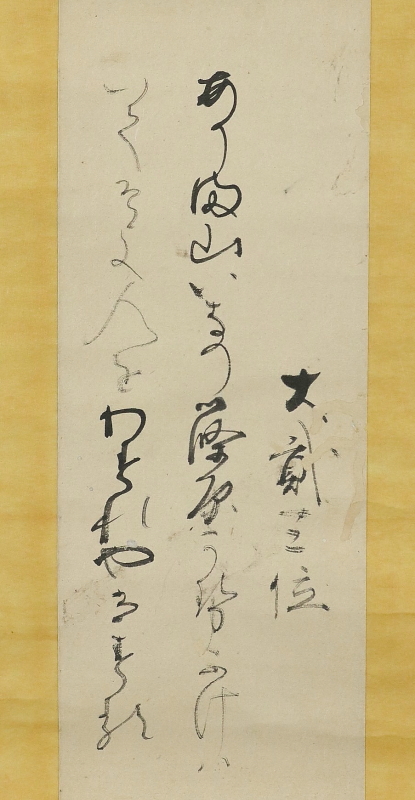 大貳三位
あり満山いなの篠原可勢ふけハ
いてそよ人をわすれやはする